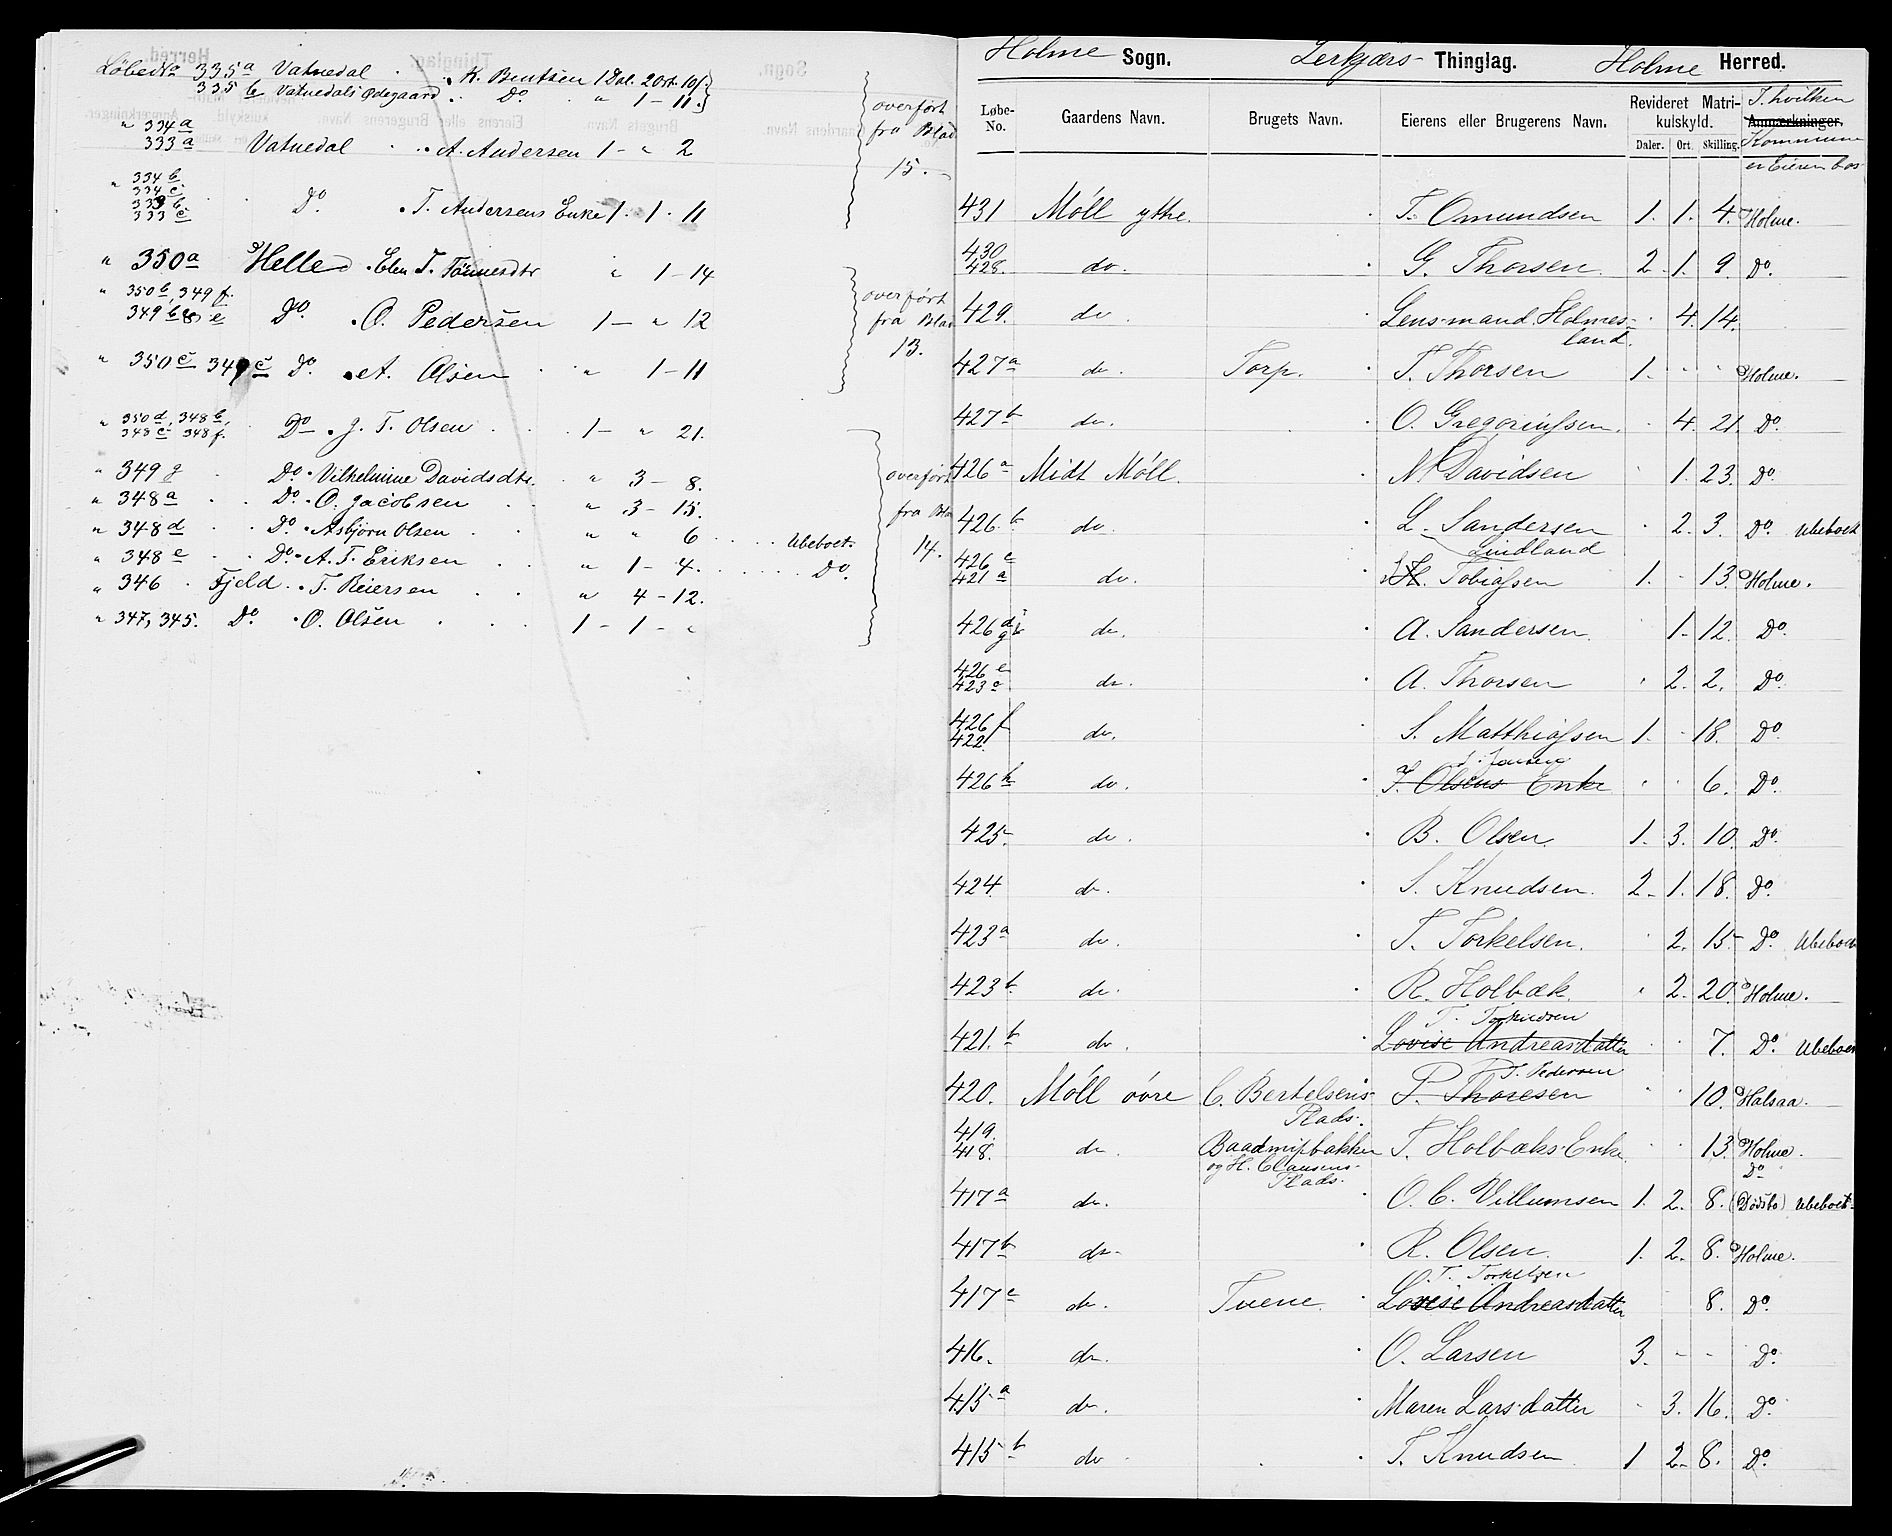 Løbe No 335a Vatnedal . . K. Bentsen 1 Dal. 2 ort 10 /.
335 b Vatnedals Ødegaard . . Do . " 1 - 11.
overført fra Blad 15.
" 334a
333a Vatnedal . . A. Andersen 1 - " 2
" 334 b
334 c
333 b
333 c . . Do . T. Andersens Enke 1 . 1 . 11
" 350a Helle . Elen T. Tønnesdtr " 1 - 14
" 350 b, 349 f.
349 b e Do . O. Pedersen 1 - " 12
overført fra Blad 13.
" 350 c 349 c Do . A. Olsen . " 1 - 11
" 350 d, 348 b,
348 c 348 f. . Do . J. T. Olsen . . . 1 - " 21.
" 349 g . Do . Vilhelmine Davidsdtr. . " 3 - 8.
" 348 a . . Do . O. Jacobsen . . " 3 - 15.
" 348 d . . Do . Asbjørn Olsen . " " 6 . . . . Ubeboet.
" 348 e . . Do . A. T. Eriksen . " 1 - 4. . . . . . Do.
overført fra Bla 14.
" 346 . Fjeld . . T. Reiersen . . " 4 - 12.
" 347, 345. Do . O. Olsen . . . 1 - 1 - "
Holme Sogn. Lerkjærs- Thinglag. Holme Herred.
Løbe-No. Gaardens Navn. Brugets Navn. Eierens eller Brugerens Navn. Revideret Matrikulskyld. Anmærkninger.
Daler. Ort. Skilling.
I hvilken Kommune er Eieren bos
431 Møll ytre. T. Omundsen 1. 1. 4. Holme.
430
428. do. G. Thorsen. 2. 1. 9. Do.
429. do Lensmand Holmesland. . 4. 14.
427a do. Torp. T. Thorsen 1. . . Holme.
427b do. O. Gregoriussen. . 4. 21. Do.
426a Midt Møll. N. Davidsen . 1. 23. Do.
426.b do. L. Sandersen . 2. 3. Do. Ubeboet
Lindland
426 c
421 a do. Tobiassen 1. - 13. Holme.
426 d i
g do. A. Sandersen . 1. 12. Do.
426 e
423 c do. A. Thorsen . 2. 2. Do.
426 f
422. do. S. Matthiassen 1. . 18. Do.
Jansen
426h do. J. Olsens Enke . . 6. Do.
425. do. B. Olsen. 1. 3. 10. Do.
424. do. S. Knudsen. 2. 1. 18. Do.
423a do. T. Torkelsen. . 2. 15. Do. Ubeboet
423b. do. R. Holbæk. . 2. 20. Holme.
T.
421.b do. Lovise Andreasdatter . . 7. Do. Ubeboet
T. Pedersen
420. Møll øvre C. Bertelsens Plads. P. Thoresen . . 10. Halsaa.
419.
418. do. Baadmisbakken og H. Clausens Plads. T. Holbæks Enke. . . 13. Holme.
Do
417a do. O. C. Villumsen 1. 2. 8. (Dødsbo) Ubeboet.
417b do. R. Olsen. 1. 2. 8. Holme.
T. Torkelsen
417c do. Tuene. Lovise Andreasdatter 8. Do.
416. do. O. Larsen 3. - - Do.
415a do. Maren Larsdatter . 3. 16. Do.
415b do . T. Knudsen 1 2. 8. Do.